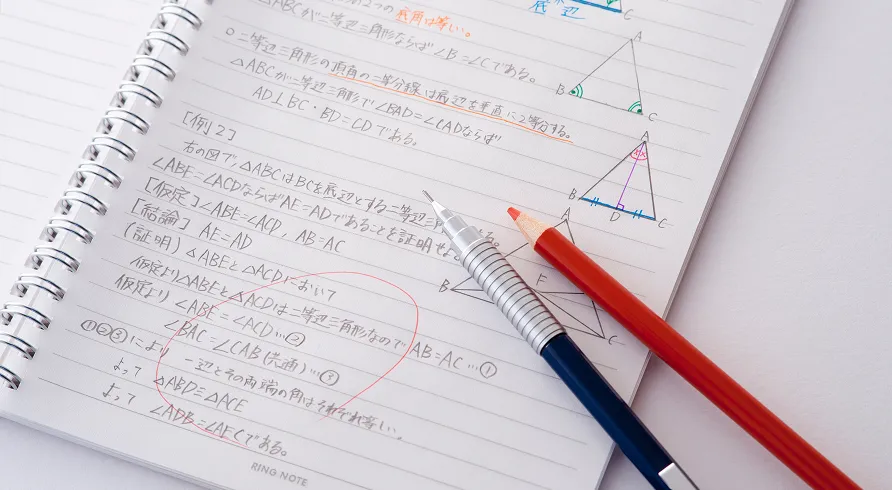 つの底角は等しい。
△ABCが二等辺三角形ならば∠B=∠Cである。
○二等辺三角形の頂角の二等分線は底辺を垂直に2等分する。
△ABCが二等辺三角形で∠BAD=∠CADならば
AD⊥BC・BD=CDである。
[例2]
右の図で、△ABCはBCを底辺とする二等辺三角
∠ABE=∠ACDならばAE=ADであることを証明せよ
[仮定]∠ABE=∠ACD, AB=AC
[結論] AE=AD
(証明) △ABEと△ACDにおいて
仮定より△ABEと△ACDは二等辺三角形なので AB=AC…①
仮定より ∠ABE=∠ACD…②
∠BAC=∠CAB(共通)…③
①②③により 一辺とその両端の角はそれぞれ等しい。
よって △ABD≡△ACE
よって ∠ADB=∠AECである。
底辺
C
A
B
C
A
B
D
C
A
B
F
C
RING NOTE